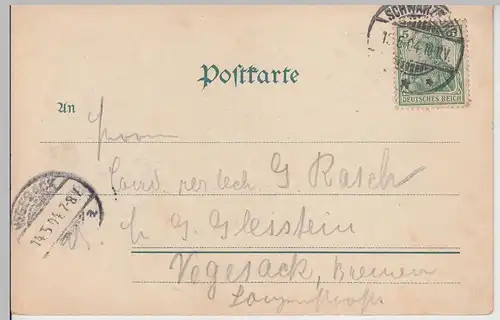 SCHWARZBURG
13.5.04.10-11V.
5
DEUTSCHES REICH
Postkarte
An
Herrn
Cand rer tech. G. Rasch
G. Gleistein
VEGESACK
14.5.04.7-8V.
Vegesack, Bremen